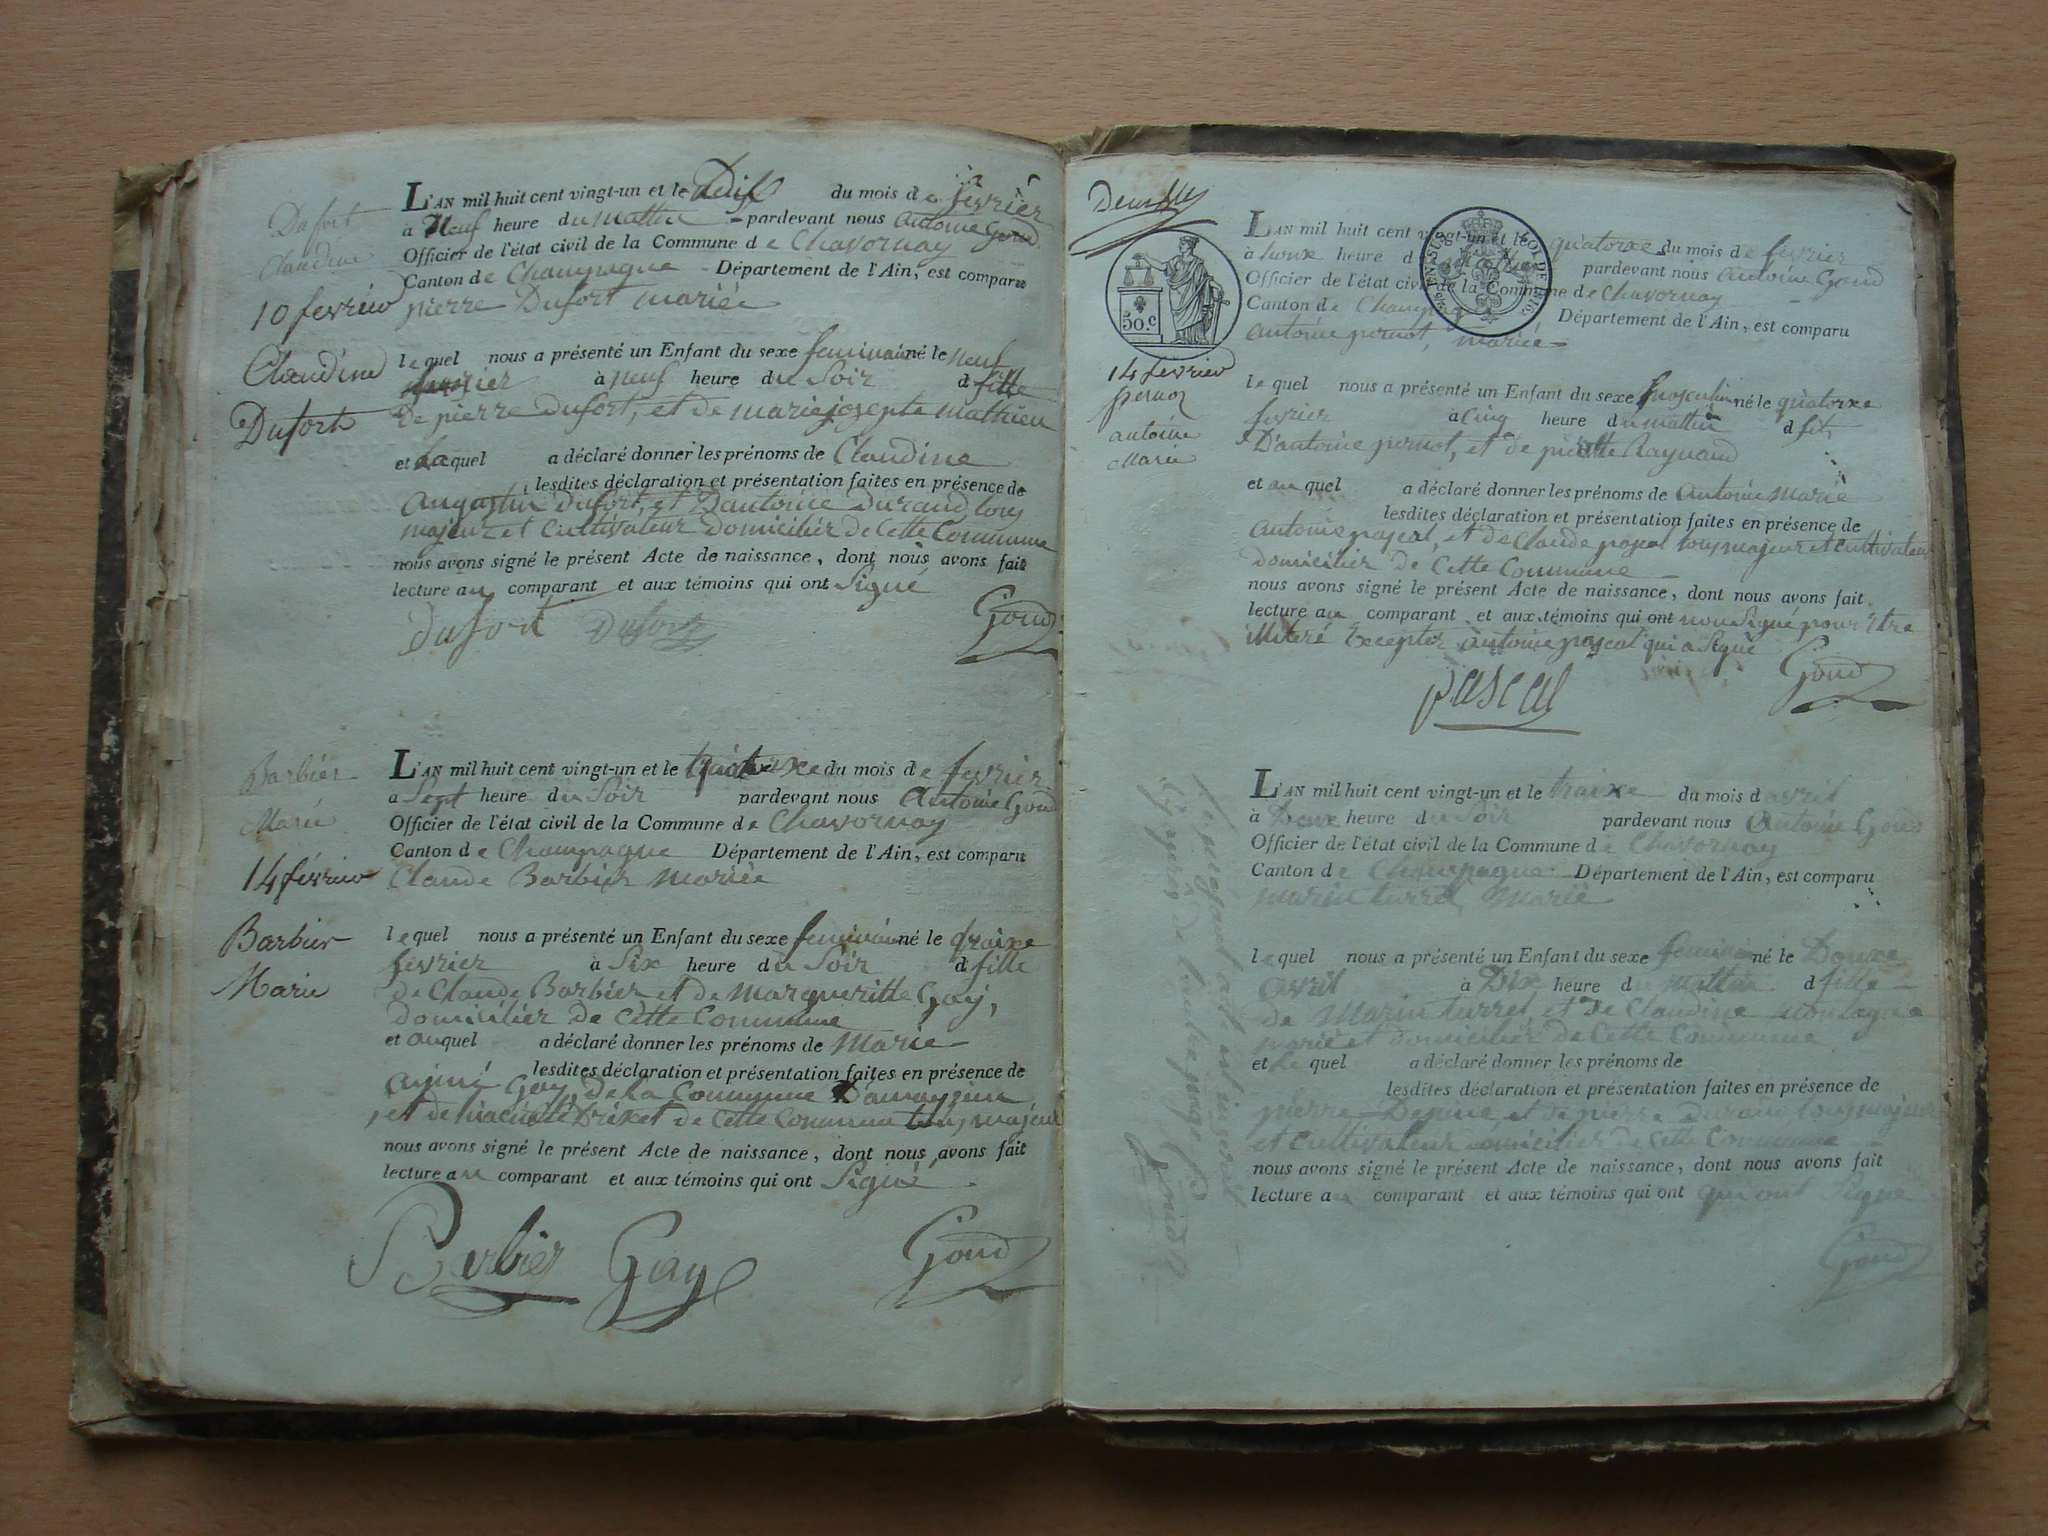 Dufort
Claudine
10 fevrier
Claudine
Dufort
L'AN mil huit cent vingt-un et le Dix du mois de fevrier
à Neuf heure du mattin pardevant nous antoine Goud
Officier de l'état civil de la Commune de Chavornay
Canton de Champagne Département de l'Ain, est comparu
pierre Dufort mariée
lequel nous a présenté un Enfant du sexe feminin né le neuf
fevrier à neuf heure du Soir d fille
De pierre dufort, et de marie josepte mathieu
et La quel a déclaré donner les prénoms de Claudine
lesdites déclaration et présentation faites en présence de
augustin Dufort, et D'antoine Durand tous
majeur et Cultivateur domicilier de Cette Commune
nous avons signé le présent Acte de naissance, dont nous avons fait
lecture au comparant et aux témoins qui ont Signé
Dufort Dufort Goud
Barbier
Marie
14 février
Barbier
Marie
L'AN mil huit cent vingt-un et le du mois de fevrier
a Sept heure du Soir pardevant nous Antoine Goud
Officier de l'état civil de la Commune de Chavornay
Canton de Champagne Département de l'Ain, est comparu
Claude Barbier Mariée
lequel nous a présenté un Enfant du sexe feminin né le traixe
fevrier à Six heure du Soir d fille
de Claude Barbier et de Margueritte Gay,
Domicilier de Cette Commune
et au quel a déclaré donner les prénoms de Marie
lesdites déclaration et présentation faites en présence de
aymé Gay, de la Commune
et de Brixet de Cette Commune tous majeur
nous avons signé le présent Acte de naissance, dont nous avons fait
lecture au comparant et aux témoins qui ont Signé
Barbier Gay Goud
50.c
14 fevrier
pernoz
antoine
Marie
L'AN mil huit cent vingt-un et le quatorxe du mois de fevrier
à heure d pardevant nous Antoine Goud
Officier de l'état civil de la Commune de Chavornay
Canton de Champagne Département de l'Ain, est comparu
antoine pernot, mariée
lequel nous a présenté un Enfant du sexe masculin né le quatorxe
fevrier à Cinq heure du mattin d fils
D'antoine pernot, et de pierrette Raynaud
et au quel a déclaré donner les prénoms de Antoine Marie
lesdites déclaration et présentation faites en présence de
Antoine pascal, et de Claude pascal tous majeur et Cultivateur
Domicilier de Cette Commune
nous avons signé le présent Acte de naissance, dont nous avons fait
lecture au comparant et aux témoins qui ont non Signé pour être
illiteré Excepter antoine pascal qui a Signé
pascal Goud
L'AN mil huit cent vingt-un et le traixe du mois d avril
à heure du Soir pardevant nous Antoine Goud
Officier de l'état civil de la Commune de Chavornay
Canton de Champagne Département de l'Ain, est comparu
marin turrel Mariée
lequel nous a présenté un Enfant du sexe feminin né le Douxe
avril à Dix heure du mattin d fille
de Marin turrel, et de Claudine Montagne
marié et domicilier de Cette Commune
et Le quel a déclaré donner les prénoms de
lesdites déclaration et présentation faites en présence de
pierre et de pierre Durand tous majeur
et Cultivateur domicilier de Cette Commune
nous avons signé le présent Acte de naissance, dont nous avons fait
lecture au comparant et aux témoins qui ont qui ont Signé
Goud